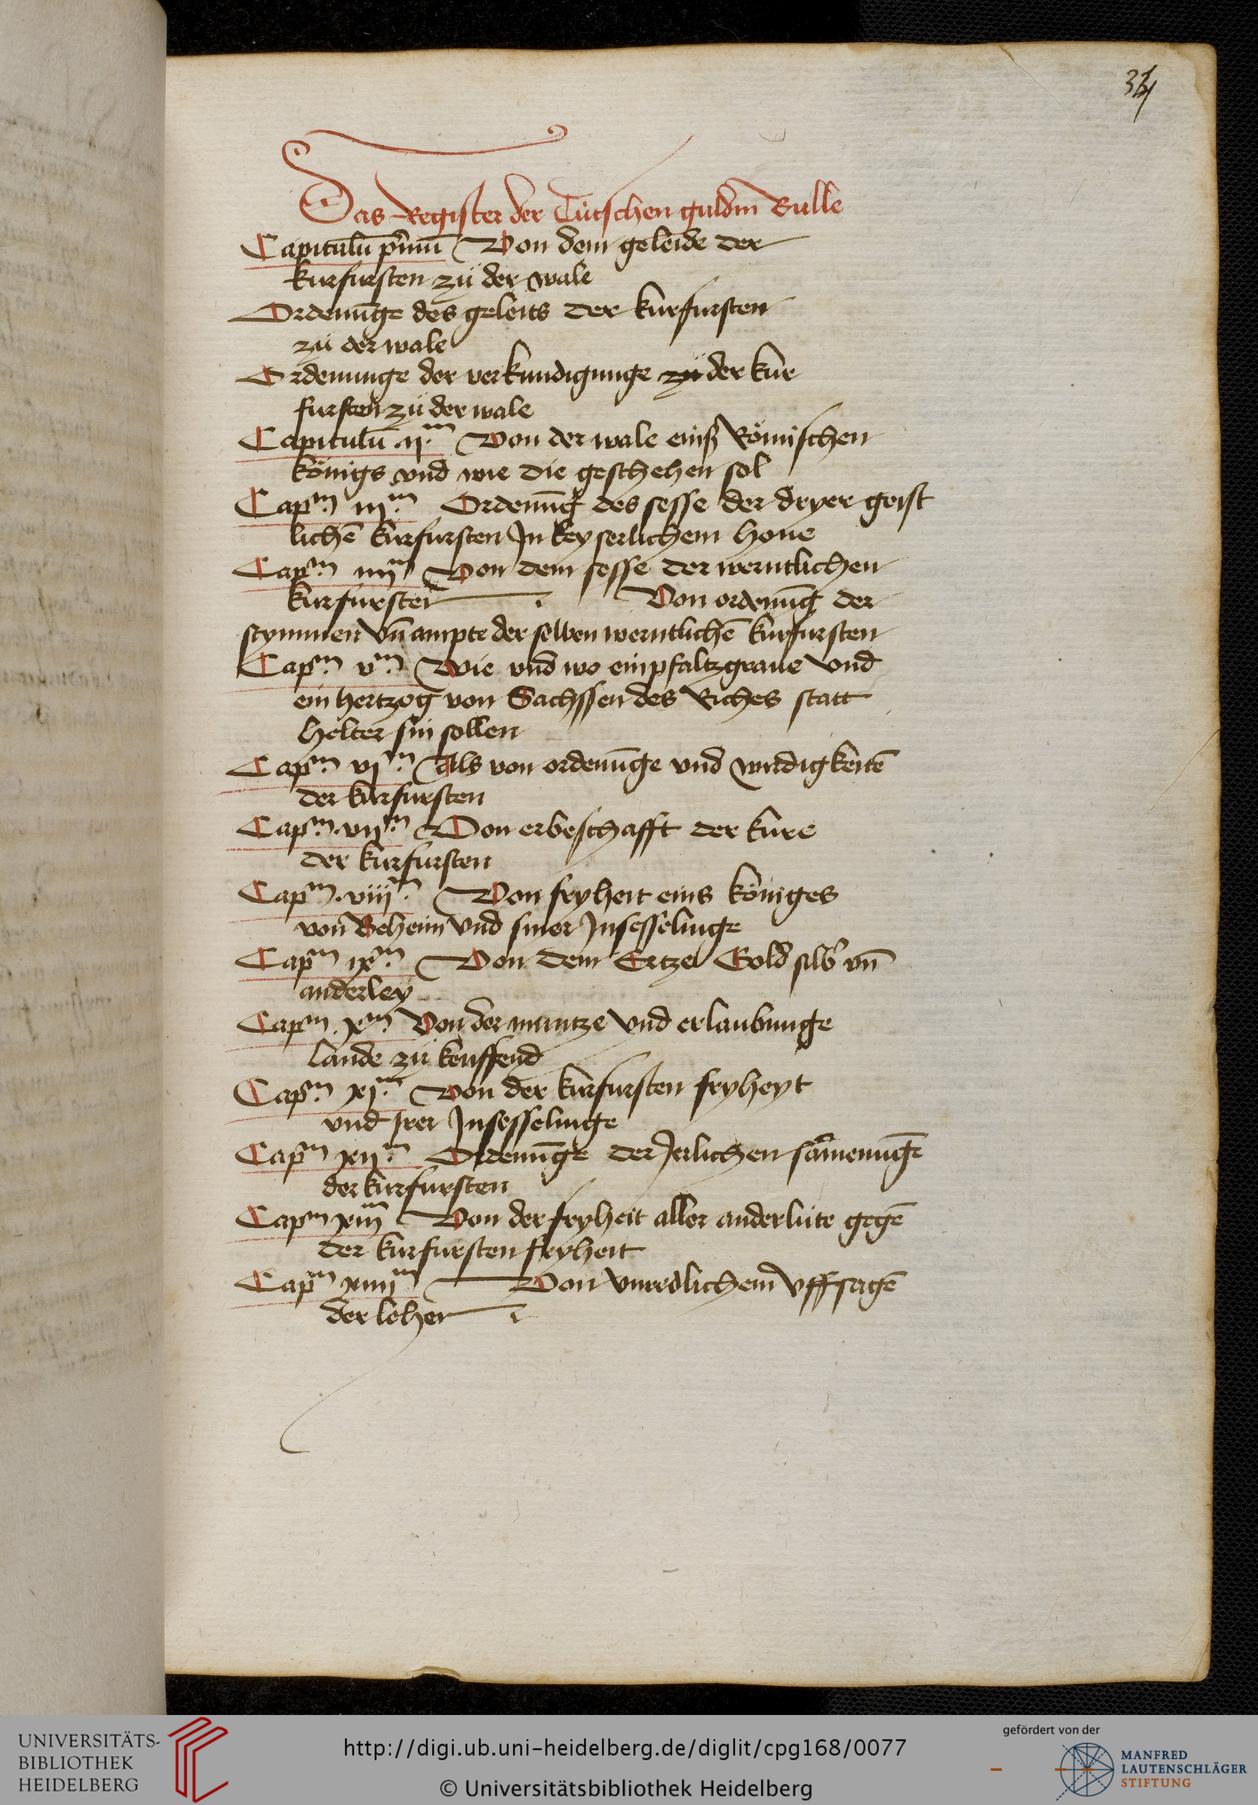 34
Das Register der Tütschen guldin Bulle
Capitulū pͥmū Von dem geleide der
kurfursten zü der wale
Ordenūge des geleits der kurfursten
zü der wale
Ordenunge der verkundigunge zü der kur
fursten zü der wale
Capitulū .ij.m Von der wale einß Römischen
königs vnd wie die geschehen sol
Capm iijm Ordenūg des sesse der dryer geist
lichē kurfursten In keyserlichem houe
Capm iiijm Von dem sesse der werntlichen
kurfursten Von ordenūg der
stymmen vn̄ ampte der selben werntlichē kurfursten
Capm vm Wie vnd wo ein pfaltzgraue vnd
ein hertzog von Sachssen des Riches statt
helter sin sollen
Capm vjm Als von ordenūge vnd wirdigkeitē
der kurfursten
Capm .vijm Von erbeschafft der kure
der kurfursten
Capm .viijm Von fryheit eins königes
von Beheim vnd siner Insesselinge
Capm ixm Von dem Ertze Gold silb' vn̄
anderley
Capm .xm Von der muntze vnd erlaubunge
lande zü keuffend
Capm xjm Von der kurfursten fryheyt
vnd Irer Insesselinge
Capm xijm Ordenūge der Jerlichen sāmenūge
der kurfursten
Capm xiijm Von der fryheit aller anderlüte gegē
der kurfursten fryheit
Capm xiiijm Von vnredlichem vffsagē
der lehen
UNIVERSITÄTS-
BIBLIOTHEK
HEIDELBERG
http://digi.ub.uni-heidelberg.de/diglit/cpg168/0077
© Universitätsbibliothek Heidelberg
gefördert von der
MANFRED
LAUTENSCHLÄGER
STIFTUNG